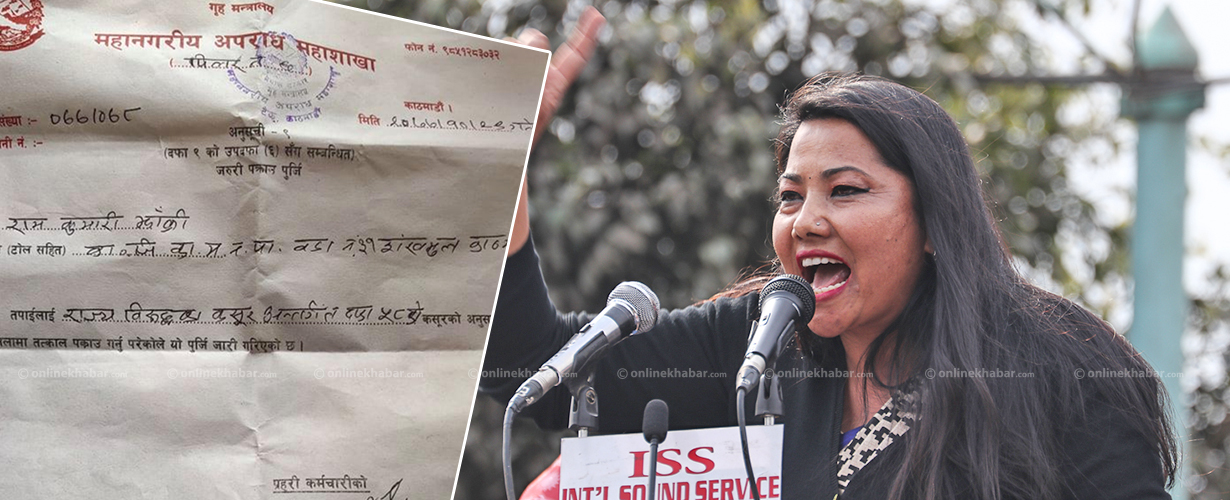 गृह मन्त्रालय
महानगरीय अपराध महाशाखा
फोन नं. ९८५१२८३०३२
काठमाडौं ।
संख्या :- ०७७/०७८
मिति
नी नं. :-
अनुसूची - १
(दफा ९ को उपदफा (६) सँग सम्बन्धित)
जरुरी पक्राउ पुर्जि
राम कुमारी झाँक्री
(टोल सहित) का.जि. का.म.न.पा. वडा नं ३१ शंखमुल
तपाईंलाई राज्य विरुद्धको कसूर अन्तर्गत दफा ५८ को कसूरको अनुस
लामा तत्काल पक्राउ गर्नु परेकोले यो पुर्जि जारी गरिएको छ ।
© onlinekhabar.com © onlinekhabar.com © onlinekhabar.com © onlinekhabar.com © onlinekhabar.com © onlinekhabar.com © onlinekhabar.com
प्रहरी कर्मचारीको
ISS
INT'L SOUND SERVICE